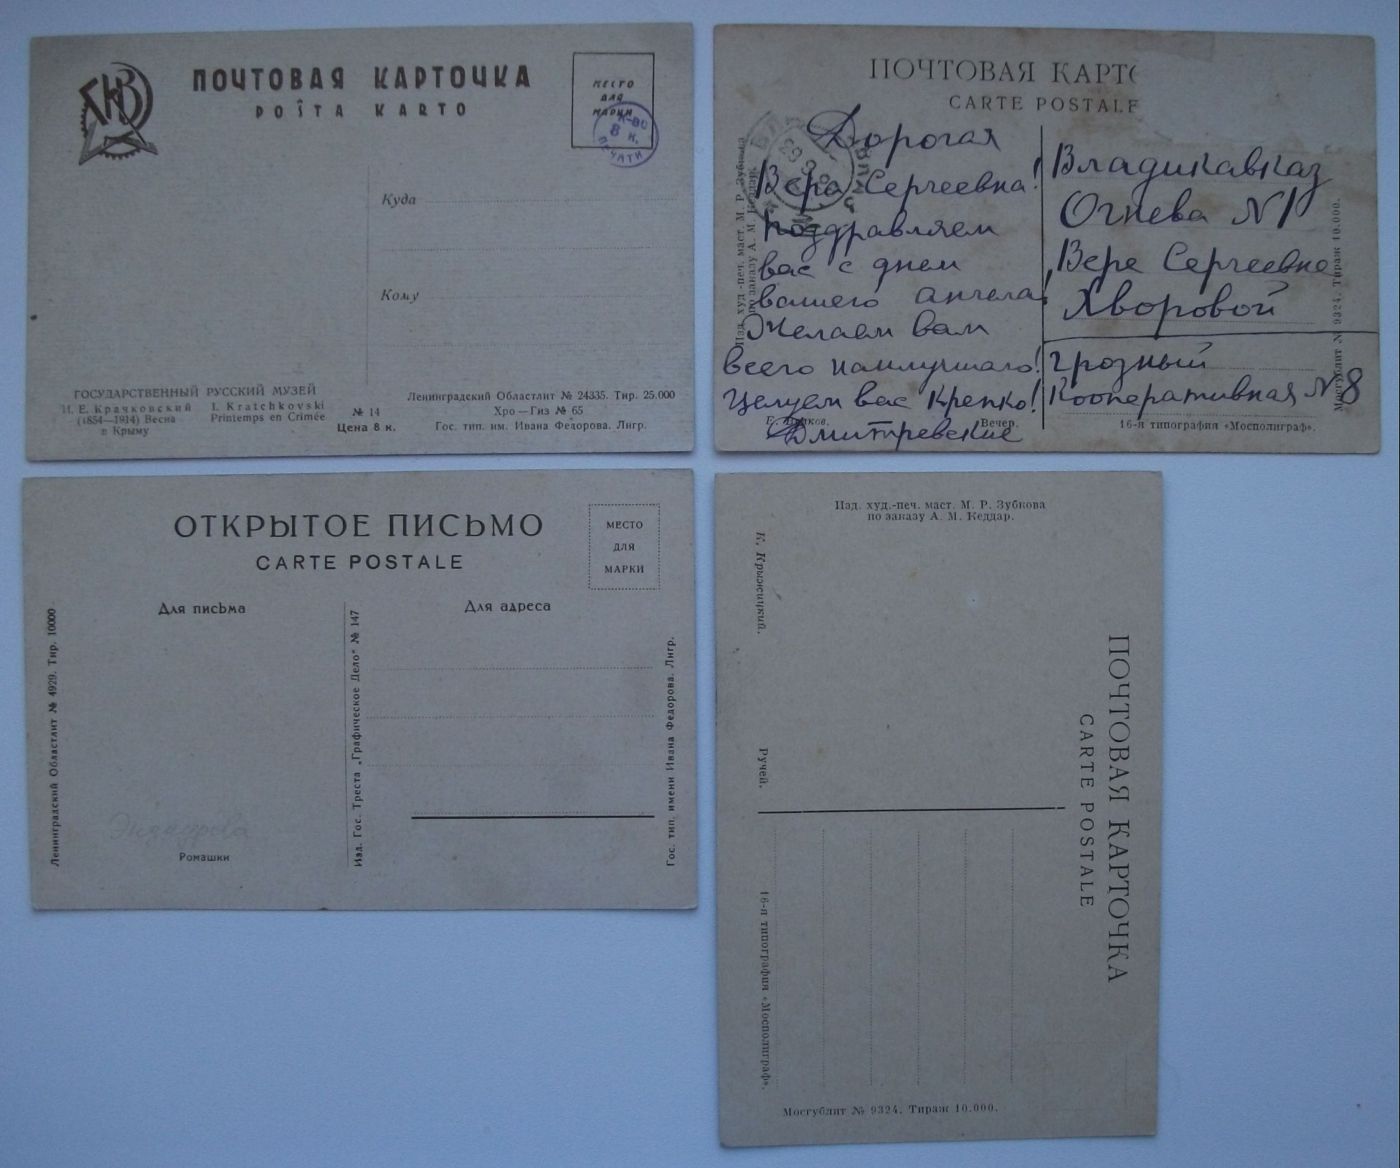 ПОЧТОВАЯ КАРТОЧКА
POŜTA KARTO
МЕСТО
ДЛЯ
МАРКИ
8 к.
ПЕЧАТИ
Куда
Кому
ГОСУДАРСТВЕННЫЙ РУССКИЙ МУЗЕЙ
И. Е. Крачковский I. Kratchkovski
(1854—1914) Весна Printemps en Crimée
в Крыму
№ 14
Цена 8 к.
Ленинградский Областлит № 24335. Тир. 25.000
Хро—Гиз № 65
Гос. тип. им. Ивана Федорова. Лнгр.
ПОЧТОВАЯ КАРТО
CARTE POSTALE
Дорогая
Вера Сергеевна!
Поздравляем
вас с днем
вашего ангела!
Желаем вам
всего наилучшаго!
Целуем вас крепко!
Дмитревские
Владикавказ
Огнева № 1
Вере Сергеевне
Хворовой
Грозный
Кооперативная № 8
Изд. худ.-печ. маст. М. Р. Зубкова
по заказу А. М. Кеддар.
Вечер.
16-я типография «Мосполиграф».
Мосгублит № 9324. Тираж 10.000.
ОТКРЫТОЕ ПИСЬМО
CARTE POSTALE
МЕСТО
ДЛЯ
МАРКИ
Для письма
Для адреса
Ленинградский Областлит № 4929. Тир. 10000
Изд. Гос. Треста „Графическое Дело“ № 147
Гос. тип. имени Ивана Федорова. Лнгр.
Ромашки
Изд. худ.-печ. маст. М. Р. Зубкова
по заказу А. М. Кеддар.
К. Крыжицкий.
Ручей.
ПОЧТОВАЯ КАРТОЧКА
CARTE POSTALE
16-я типография «Мосполиграф».
Мосгублит № 9324. Тираж 10.000.